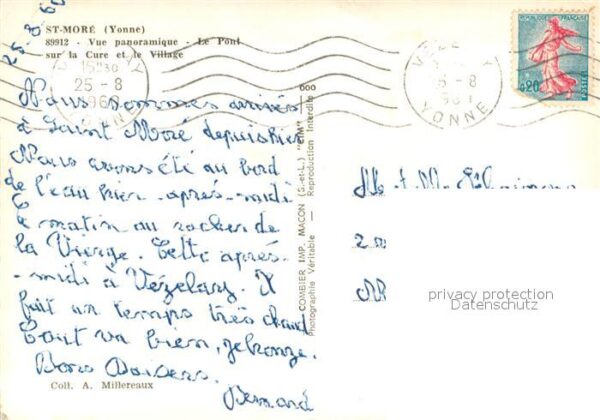 ST-MORÉ (Yonne)
89912 - Vue panoramique - Le Pont
sur la Cure et le Village
25-8-60
15H30
25-8
YONNE
-8
YONNE
RÉPUBLIQUE FRANÇAISE
0,20
POSTES
Nous sommes arrivés
à Saint Moré depuis hier
Nous avons été au bord
de l'eau hier après-midi
Ce matin au rocher de
la Vierge. Cette après-
-midi à Vézelay. Il
fait un temps très chaud
Tout va bien, je bronze.
Bons Baisers.
Bernard
Coll. A. Millereaux
COMBIER IMP. MACON (S.-et-L.) "CIM"
Photographie Véritable — Reproduction Interdite
M et M
privacy protection
Datenschutz